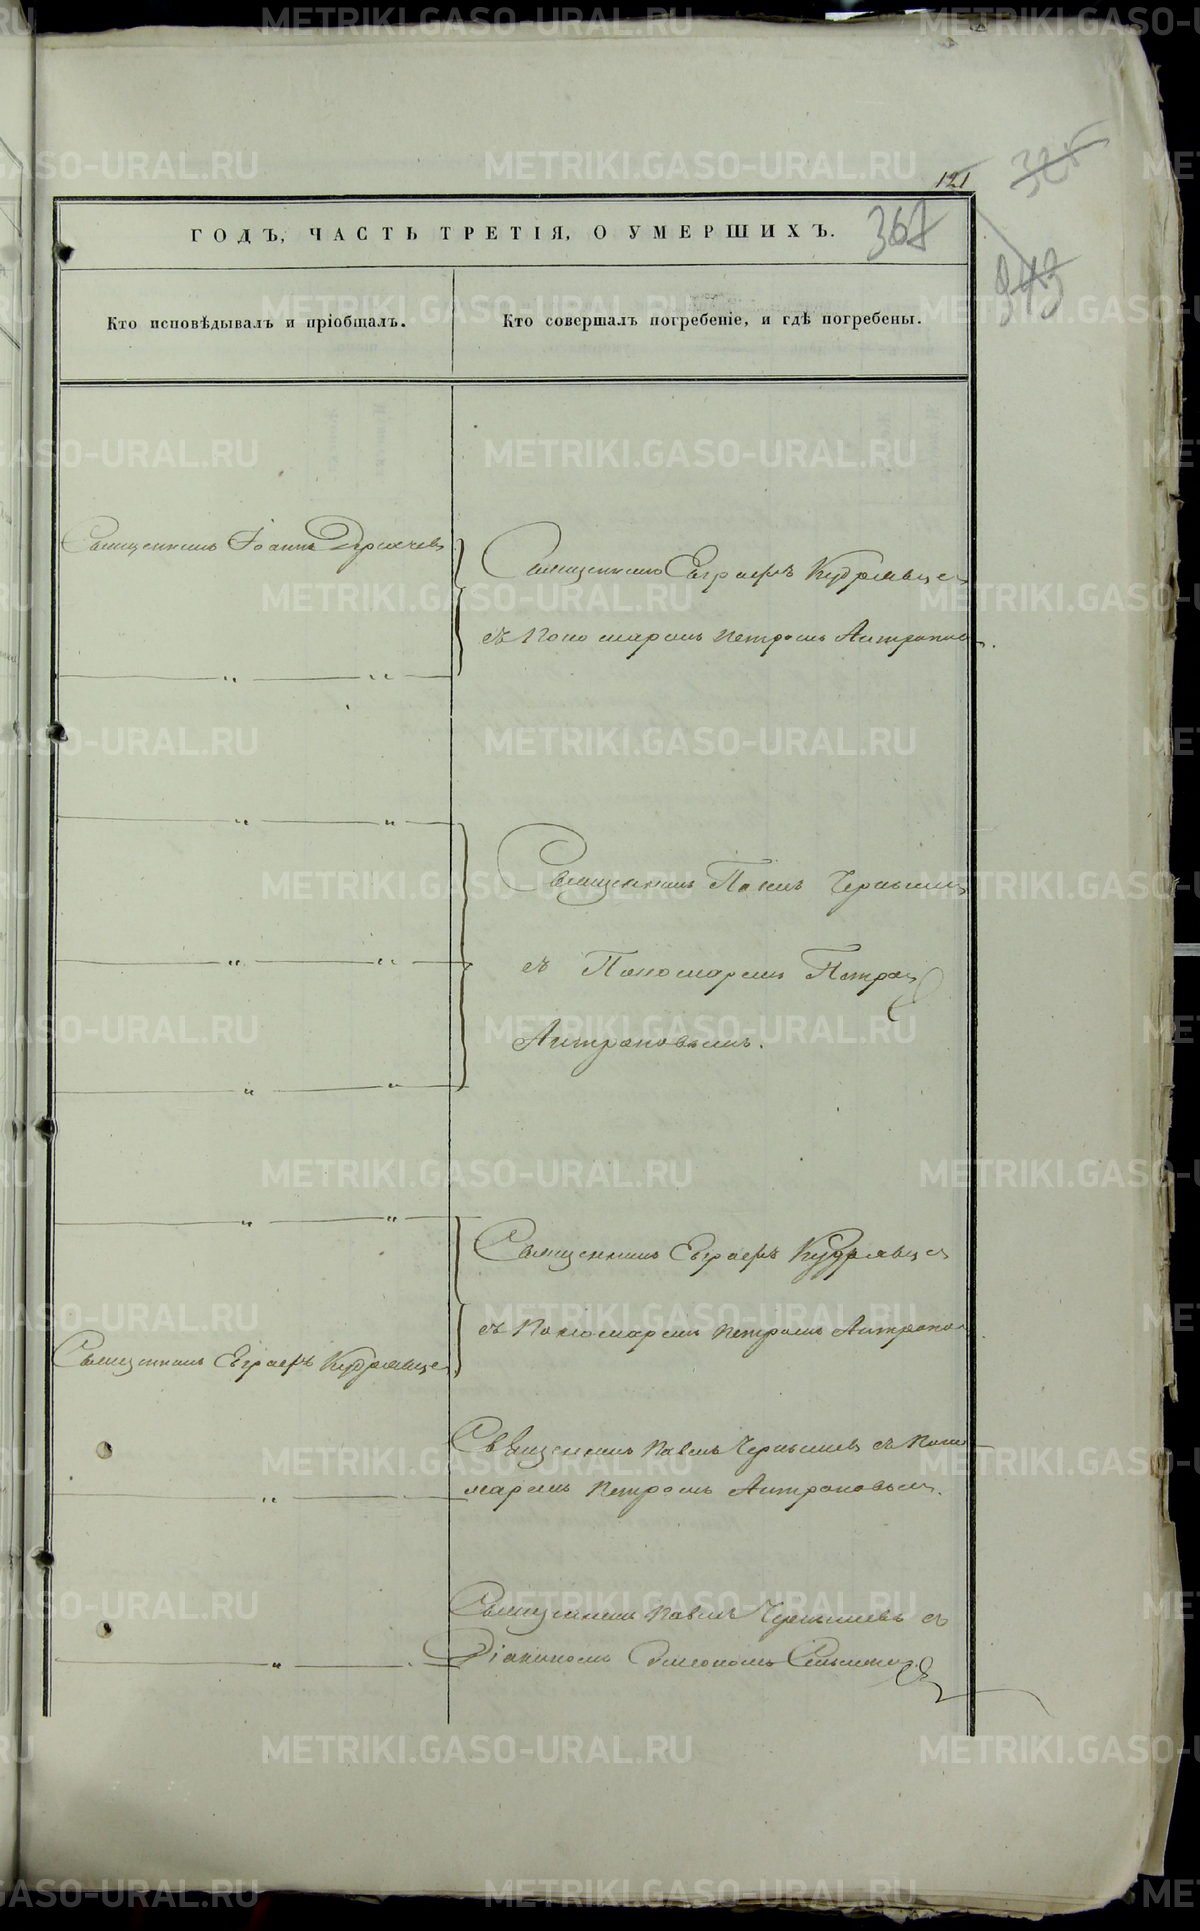 121
325
ГОДЪ, ЧАСТЬ ТРЕТІЯ, О УМЕРШИХЪ.
367
343
Кто исповѣдывалъ и пріобщалъ.
Кто совершалъ погребеніе, и гдѣ погребены.
Священникъ Іоаннъ
Священникъ Евграфъ Кудрявцев
съ Пономаремъ Петромъ Антропов
Священникъ Павелъ Чернышев
съ Пономаремъ Петром
Антроповымъ.
Священникъ Евграфъ Кудрявцев
съ Пономаремъ Петромъ Антропов
Священникъ Евграфъ Кудрявцев
Священникъ Павелъ Чернышевъ съ Поно
маремъ Петромъ Антроповым.
Священникъ Павелъ Чернышевъ съ
Діакономъ Симеономъ
METRIKI.GASO-URAL.RU